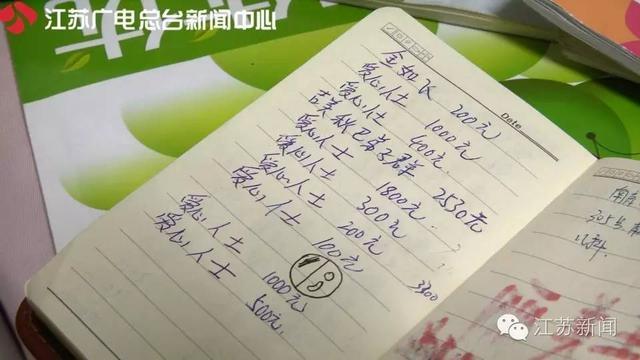 江苏广电总台新闻中心
Date
金如飞 200元
爱心人士 1000元
爱心人士 400元
2530元
爱心人士 1800元
爱心人士 300元
爱心人士 200元
爱心人士 100元
3300
爱心人士 1000元
爱心人士 500元
江苏新闻